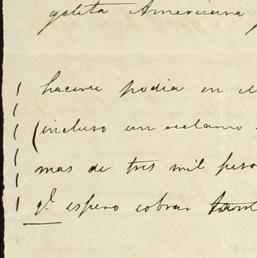 goleta Americana
hacerse podia en el
(incluso un reclamo
mas de tres mil pesos
qe. espero cobrar